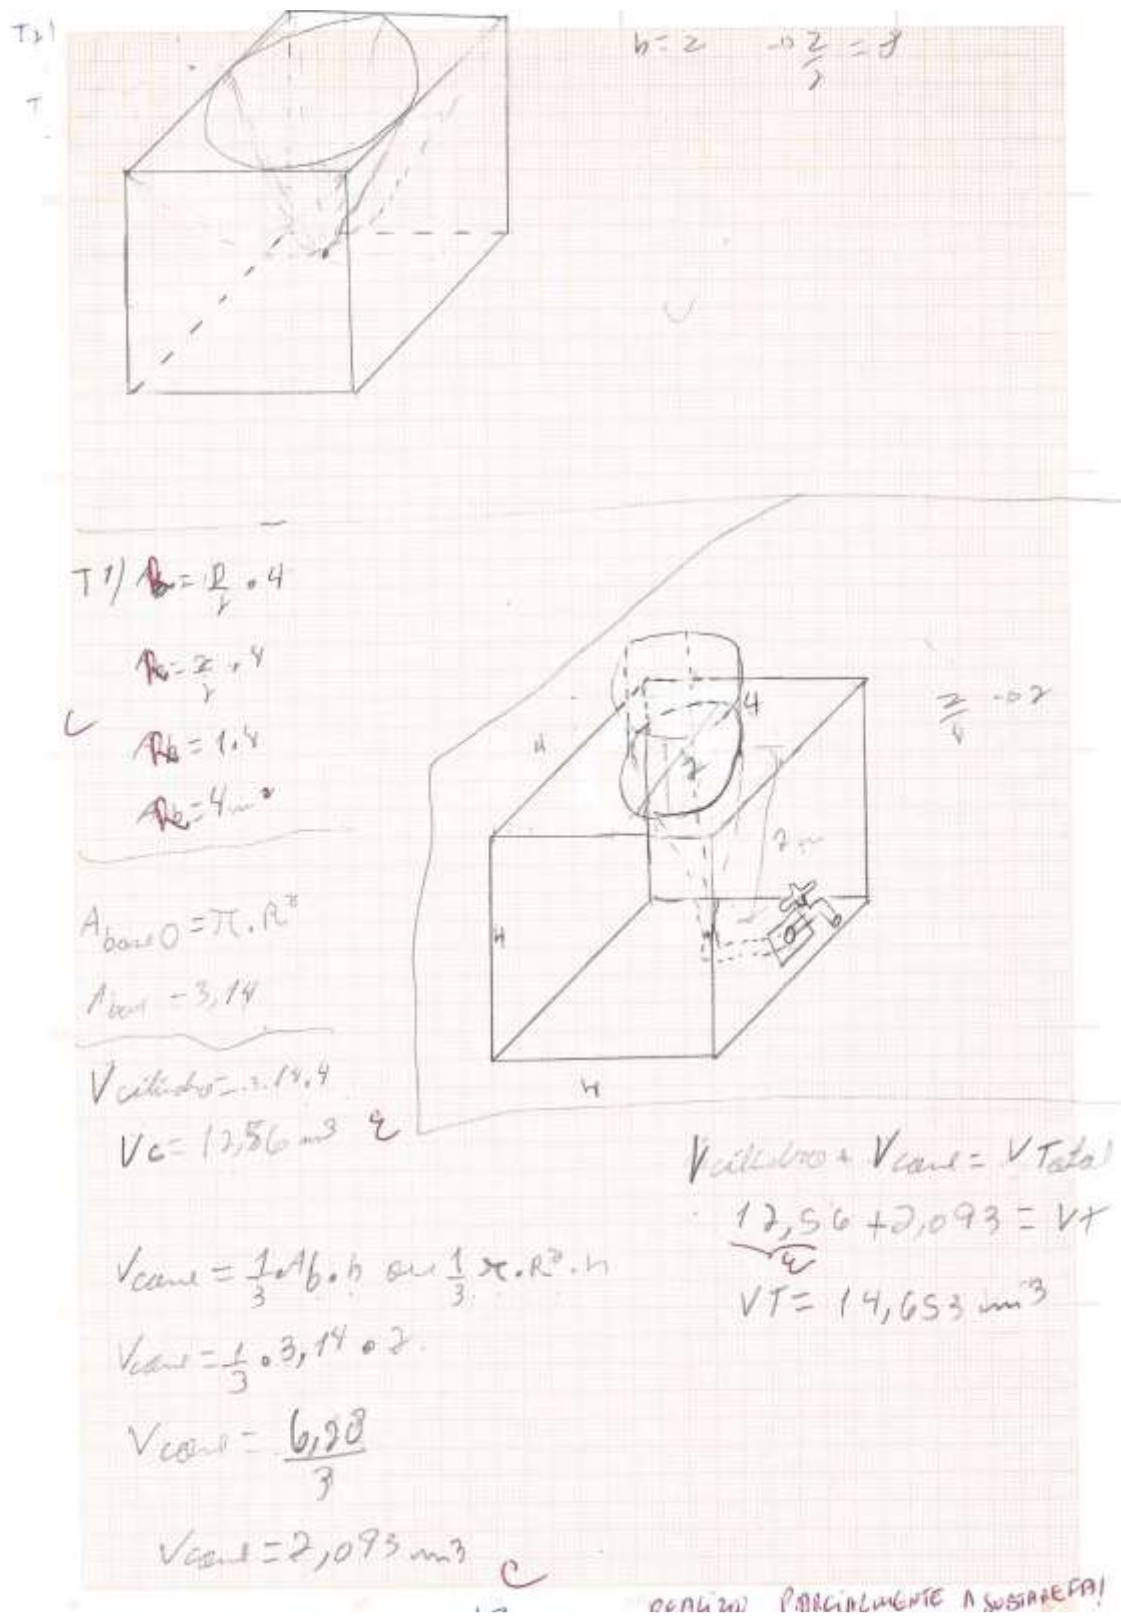 T2)
b=2 → 2/2 = 1
T
T1) Ab = P/2 . 4
Ab = 2/2 . 4
Ab = 1.4
Ab = 4 m²
C
4
4
2
2/4 → 2
2 m
4
4
A base O = π.R²
A base = 3,14
V cilindro = 3.14.4
Vc = 12,56 m³ E
V cilindro + V cone = V Total
12,56 + 2,093 = VT
E
VT = 14,653 m³
V cone = 1/3 . Ab . h ou 1/3 π.R².h
V cone = 1/3 . 3,14 . 2.
V cone = 6,28/3
V cone = 2,093 m³
C
REALIZOU PARCIALMENTE A SUBTAREFA!